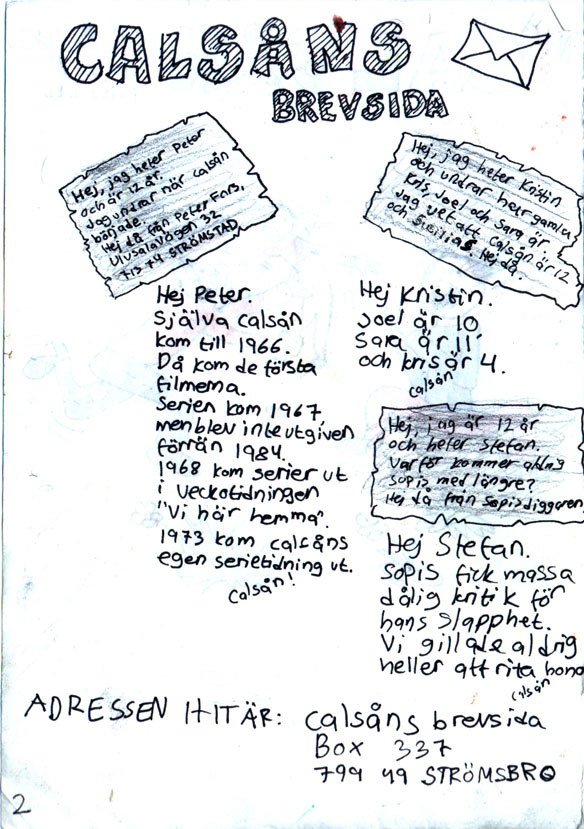 CALSÅNS
BREVSIDA
Hej, jag heter Peter
och är 12 år.
Jag undrar när calsån
började.
Hej då från Peter Fors,
Ulvsalavägen 32
713 74 STRÖMSTAD
Hej Peter.
Själva calsån
kom till 1966.
Då kom de första
filmerna.
Serien kom 1967,
men blev inte utgiven
förrän 1984.
1968 kom serier ut
i veckotidningen
"Vi här hemma".
1973 kom calsåns
egen serietidning ut.
calsån!
Hej, jag heter Kristin
och undrar hur gamla
Kris, Joel och Sara är.
Jag vet att calsån är 12
och Hej då.
Hej Kristin.
Joel är 10
Sara är 11
och kris är 4.
calsån
Hej, jag är 12 år
och heter Stefan.
Varför kommer aldrig
sopis med längre?
Hej då från Sopisdiggaren
Hej Stefan.
Sopis fick massa
dålig kritik för
hans slapphet.
Vi gillade aldrig
heller att rita hono
calsån
ADRESSEN HIT ÄR: calsåns brevsida
Box 337
794 49 STRÖMSBRO
2